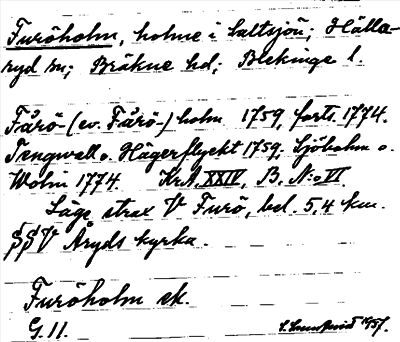 Furöholm, holme i saltsjön; Hälla-
ryd sn; Bräkne hd; Blekinge l.
Fårö- (ev. Färö-) holm 1759, forts. 1774.
Tengwall o. Hägerflyckt 1759. Sjöbohm o.
Wolin 1774. KrA, XXIV, B, N:o VI.
Läge strax V Furö, bel. 5,4 km.
SSV Åryds kyrka.
Furöholm ek.
G. 11.
1957.